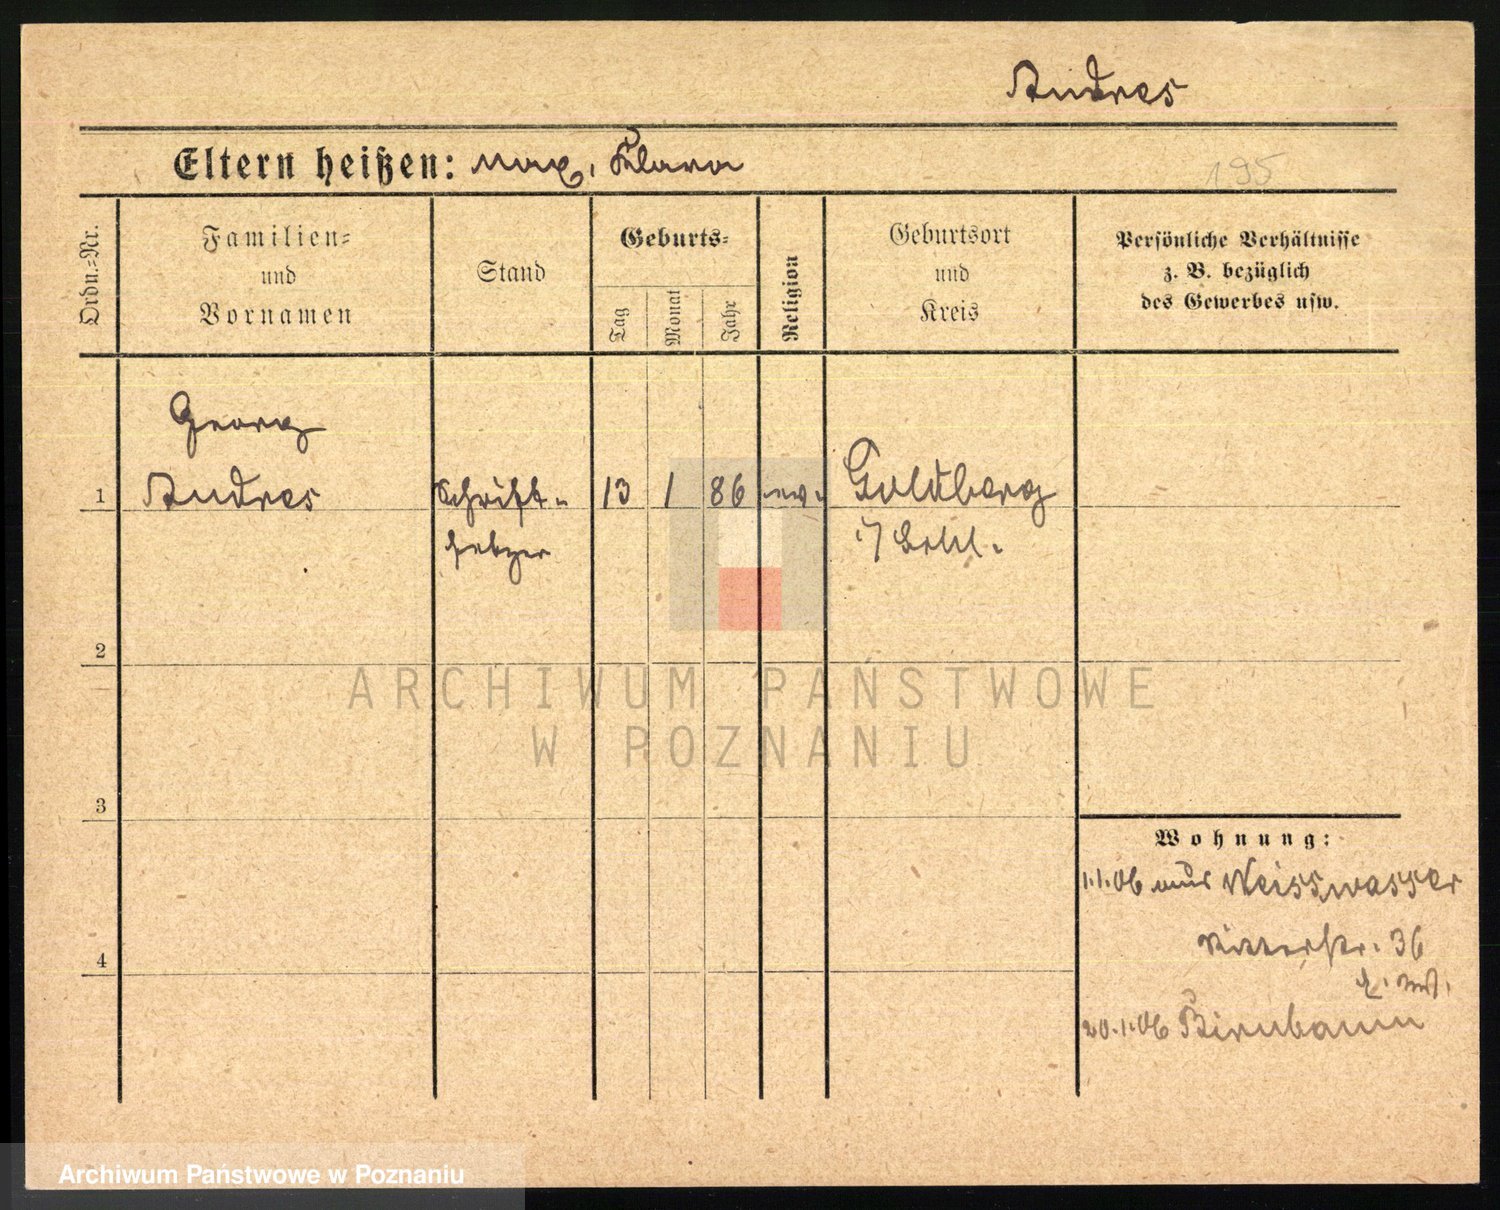 Andres
Eltern heißen: Max, Klara
195
Ordn.-Nr.
Familien-
und
Vornamen
Stand
Geburts-
Tag
Monat
Jahr
Religion
Geburtsort
und
Kreis
Persönliche Verhältnisse
z. B. bezüglich
des Gewerbes usw.
Georg
1 Andres Schrift- 13 1 86 ev. Goldberg
setzer i/ Schl.
2
ARCHIWUM PAŃSTWOWE
W POZNANIU
3
Wohnung:
1.1.06 aus Weisswasser
Ritterstr. 36
4
20.1.06 Birnbaum
Archiwum Państwowe w Poznaniu